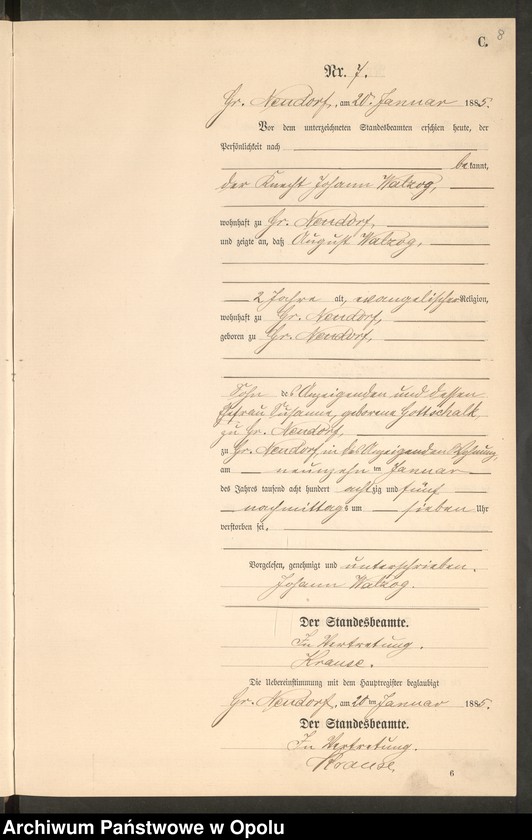 C. 8
Nr. 7.
Gr. Neudorf, am 20. Januar 1885.
Vor dem unterzeichneten Standesbeamten erschien heute, der
Persönlichkeit nach
bekannt,
der Knecht Johann Walzog,
wohnhaft zu Gr. Neudorf,
und zeigte an, daß August Walzog,
2 Jahre alt, evangelischer Religion,
wohnhaft zu Gr. Neudorf,
geboren zu Gr. Neudorf,
Sohn des Anzeigenden und dessen
Ehefrau Susanne, geborene Gottschalk,
zu Gr. Neudorf,
zu Gr. Neudorf, in des Anzeigenden Wohnung,
am neunzehnten Januar
des Jahres tausend acht hundert achtzig und fünf
nachmittags um sieben Uhr
verstorben sei.
Vorgelesen, genehmigt und unterschrieben.
Johann Walzog.
Der Standesbeamte.
In Vertretung.
Krause.
Die Uebereinstimmung mit dem Hauptregister beglaubigt
Gr. Neudorf, am 20ten Januar 1885.
Der Standesbeamte.
In Vertretung.
Krause
6
Archiwum Państwowe w Opolu